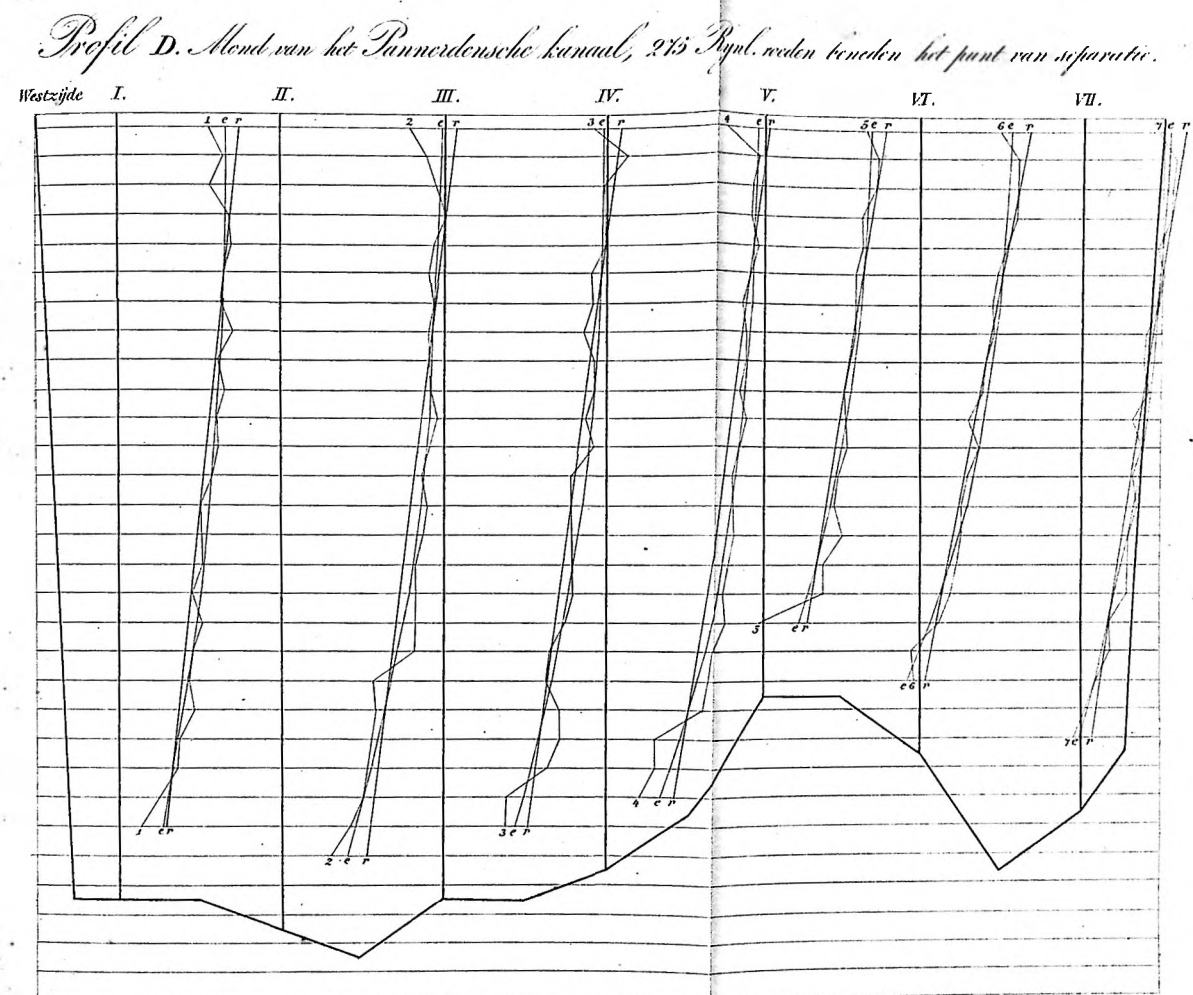 Profil D. Mond van het Pannerdensche kanaal, 275 Rynl. roeden beneden het punt van separatie.
Westzijde I. II. III. IV. V. VI. VII.
1 e r 2 e r 3 e r 4 e r 5 e r 6 e r 7 e r
5 e r
e 6 r
7 e r
4 e r
1 e r 3 e r
2 e r